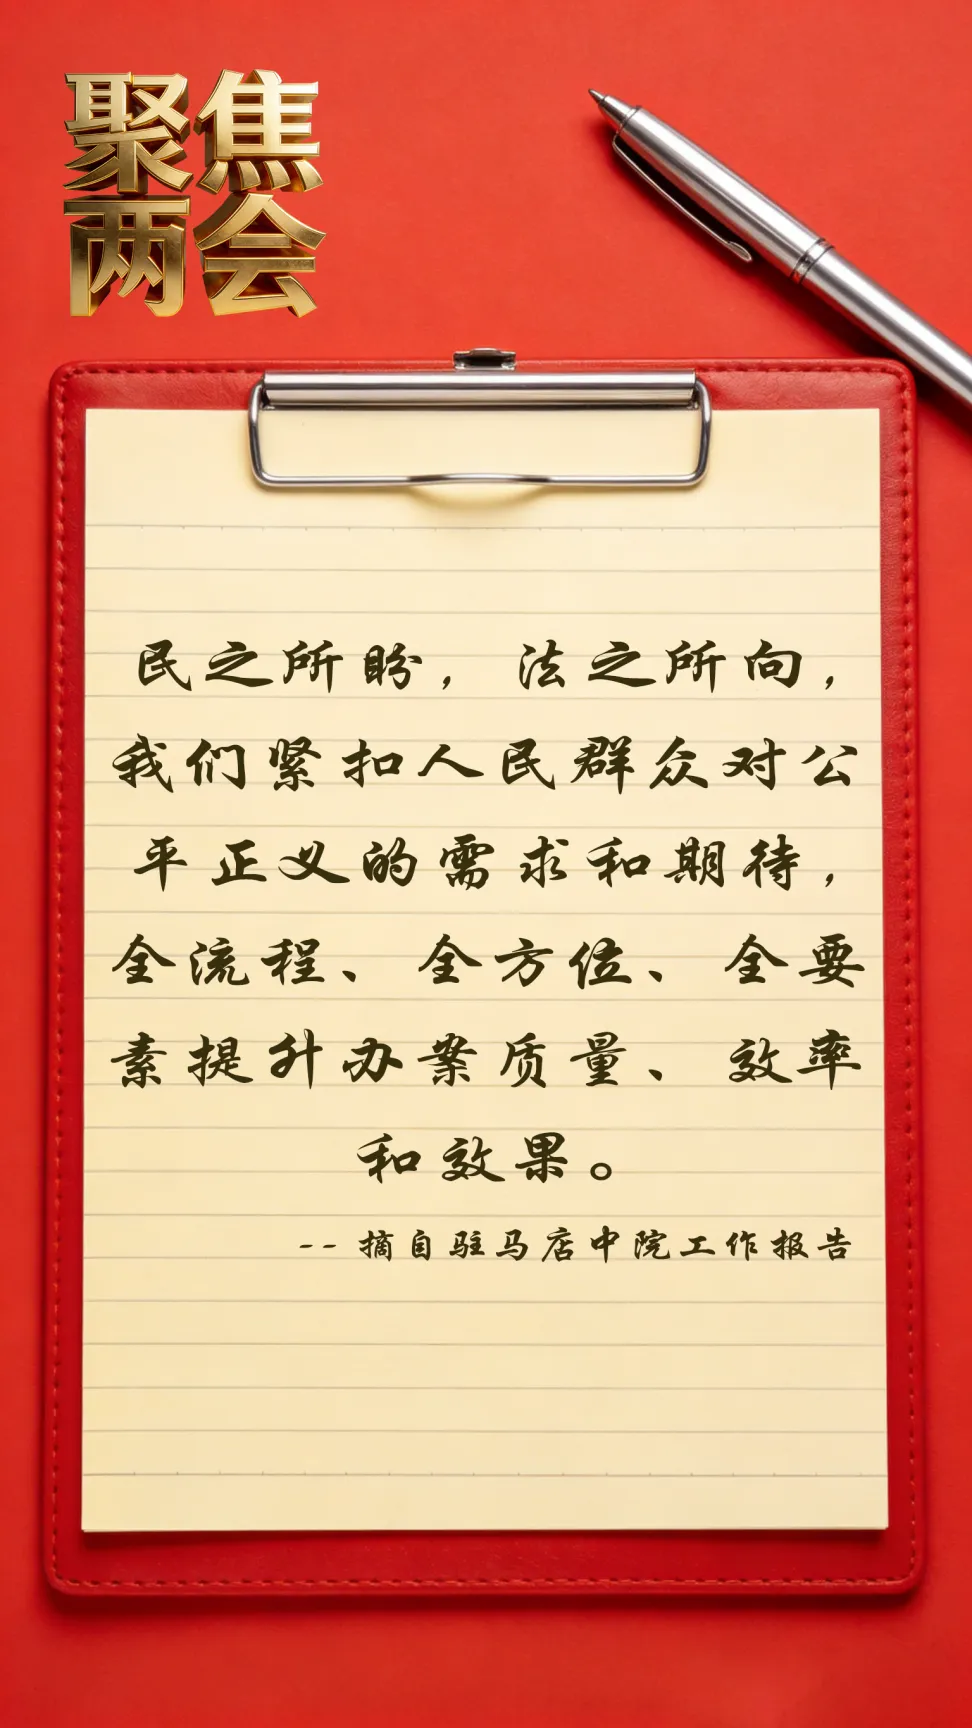 聚焦
两会
民之所盼，法之所向，
我们紧扣人民群众对公
平正义的需求和期待，
全流程、全方位、全要
素提升办案质量、效率
和效果。
--摘自驻马店中院工作报告